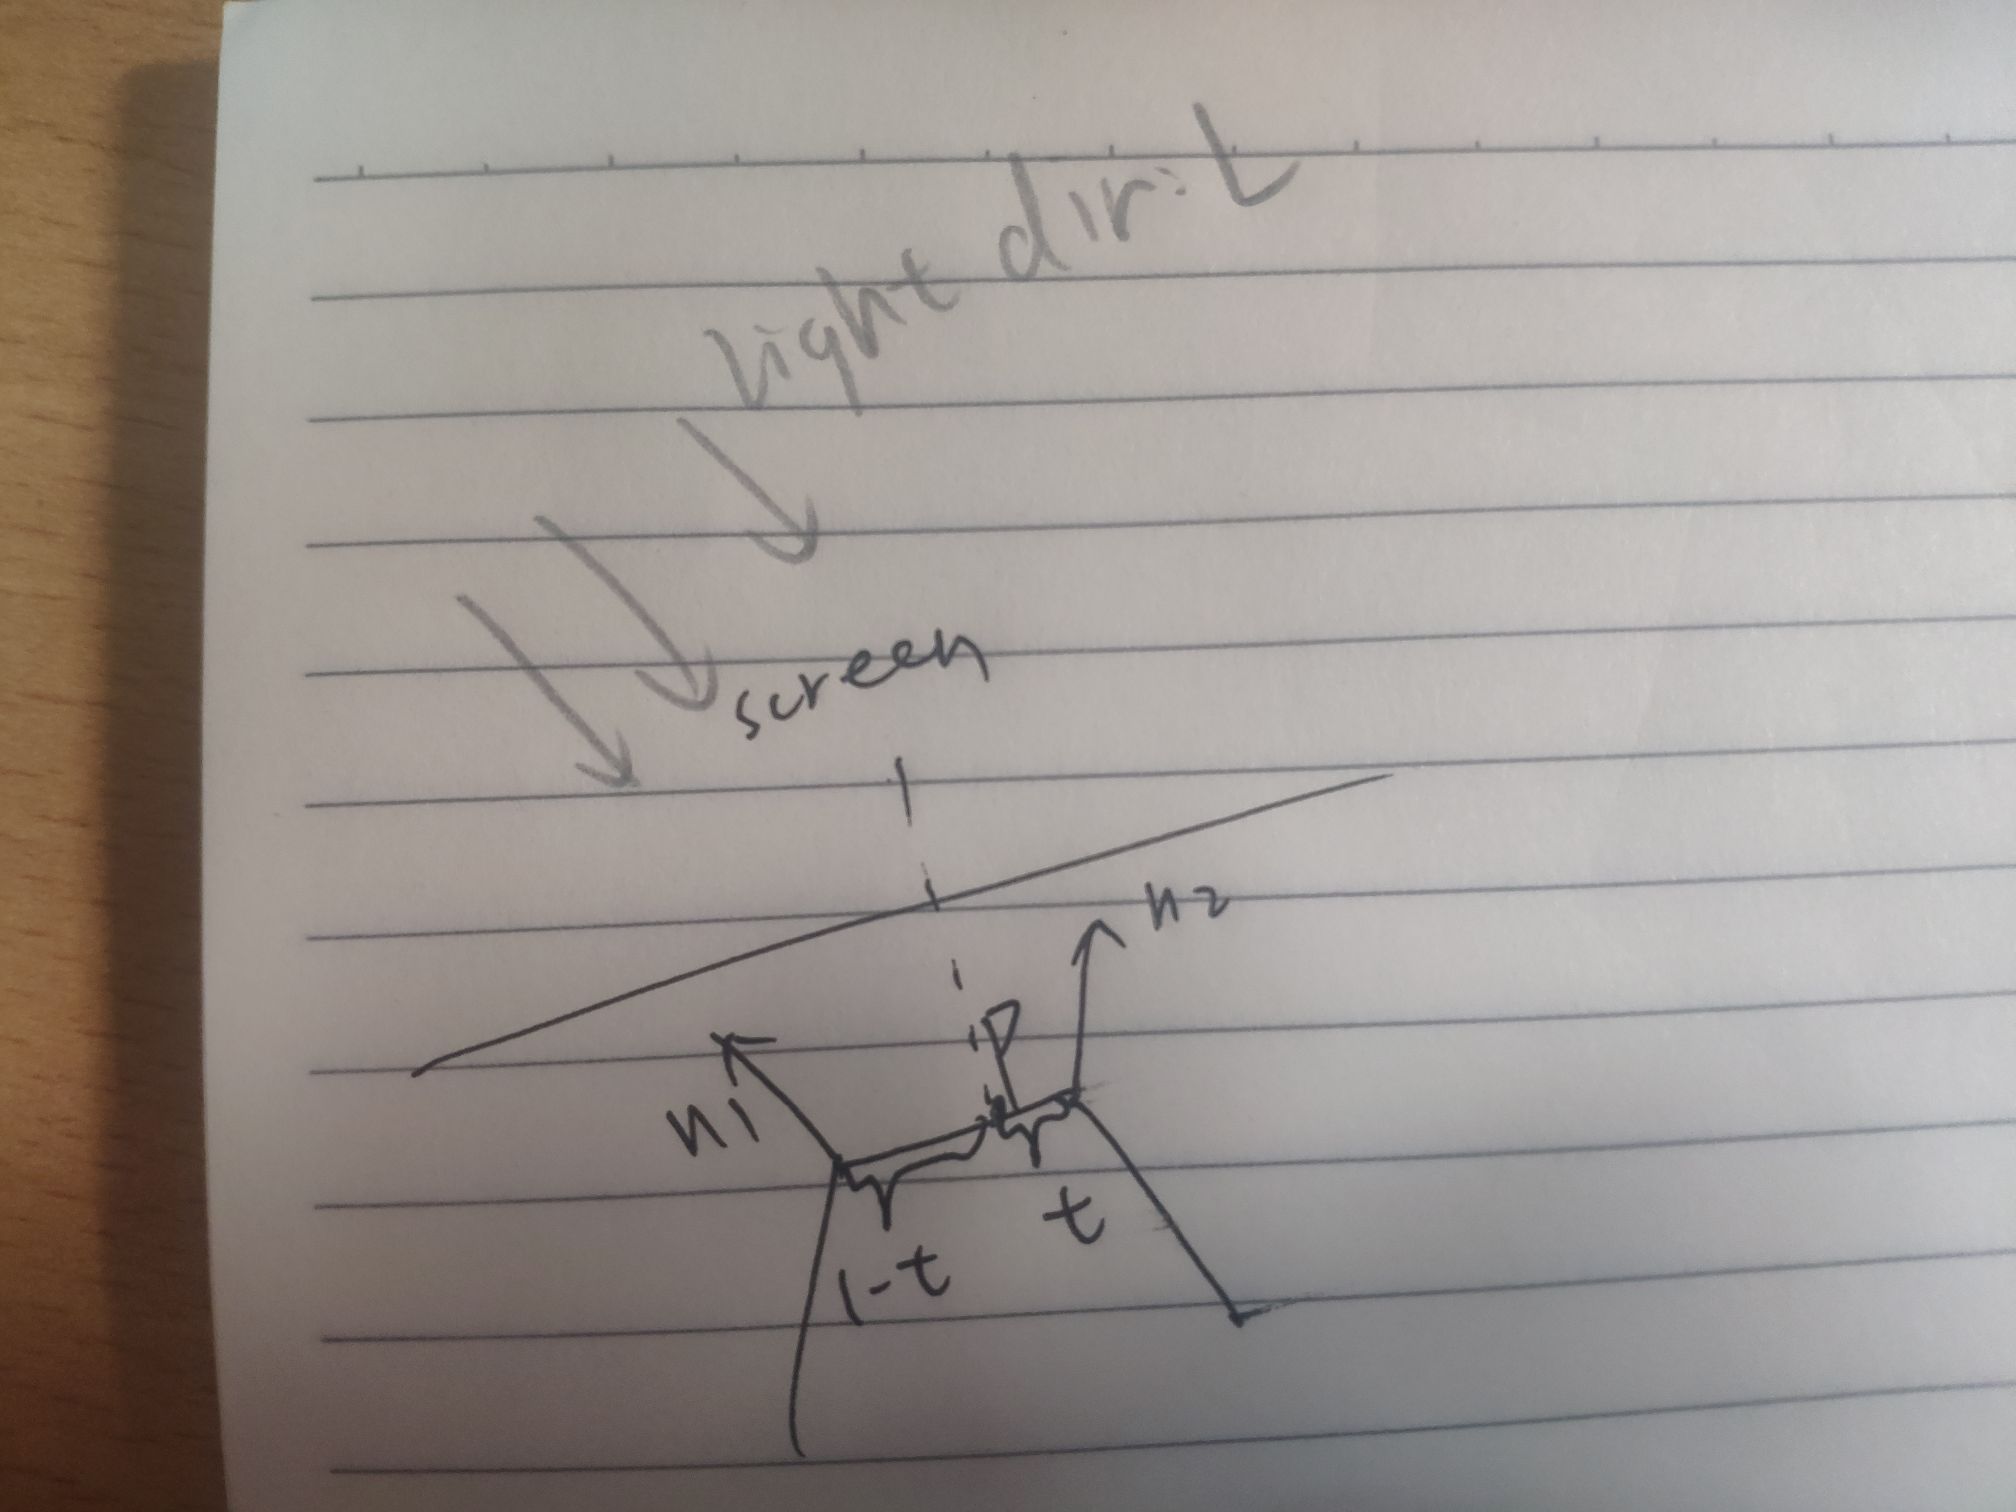 light dir: L
screen
n2
P
n1
t
1-t